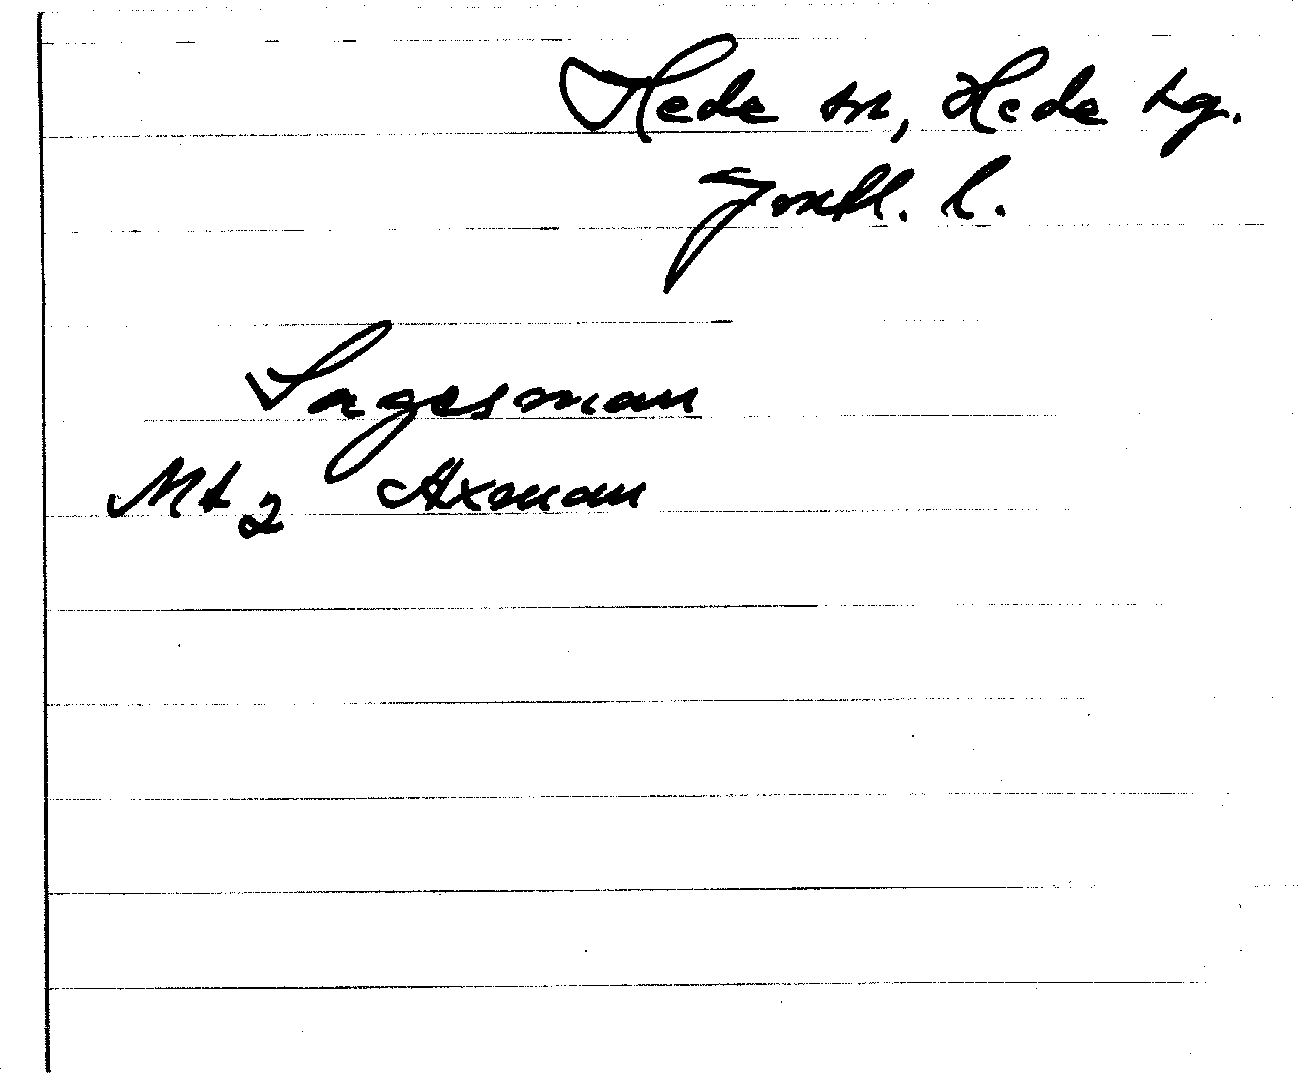 Hede sn, Hede tg.
Jmtl. l.
Sagesman
Mt2 Axman